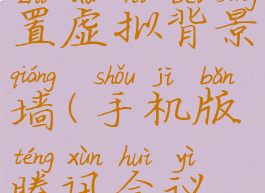 置虚拟背景
qiáng shǒu jī bǎn
墙(手机版
téng xùn huì yì
腾讯会议